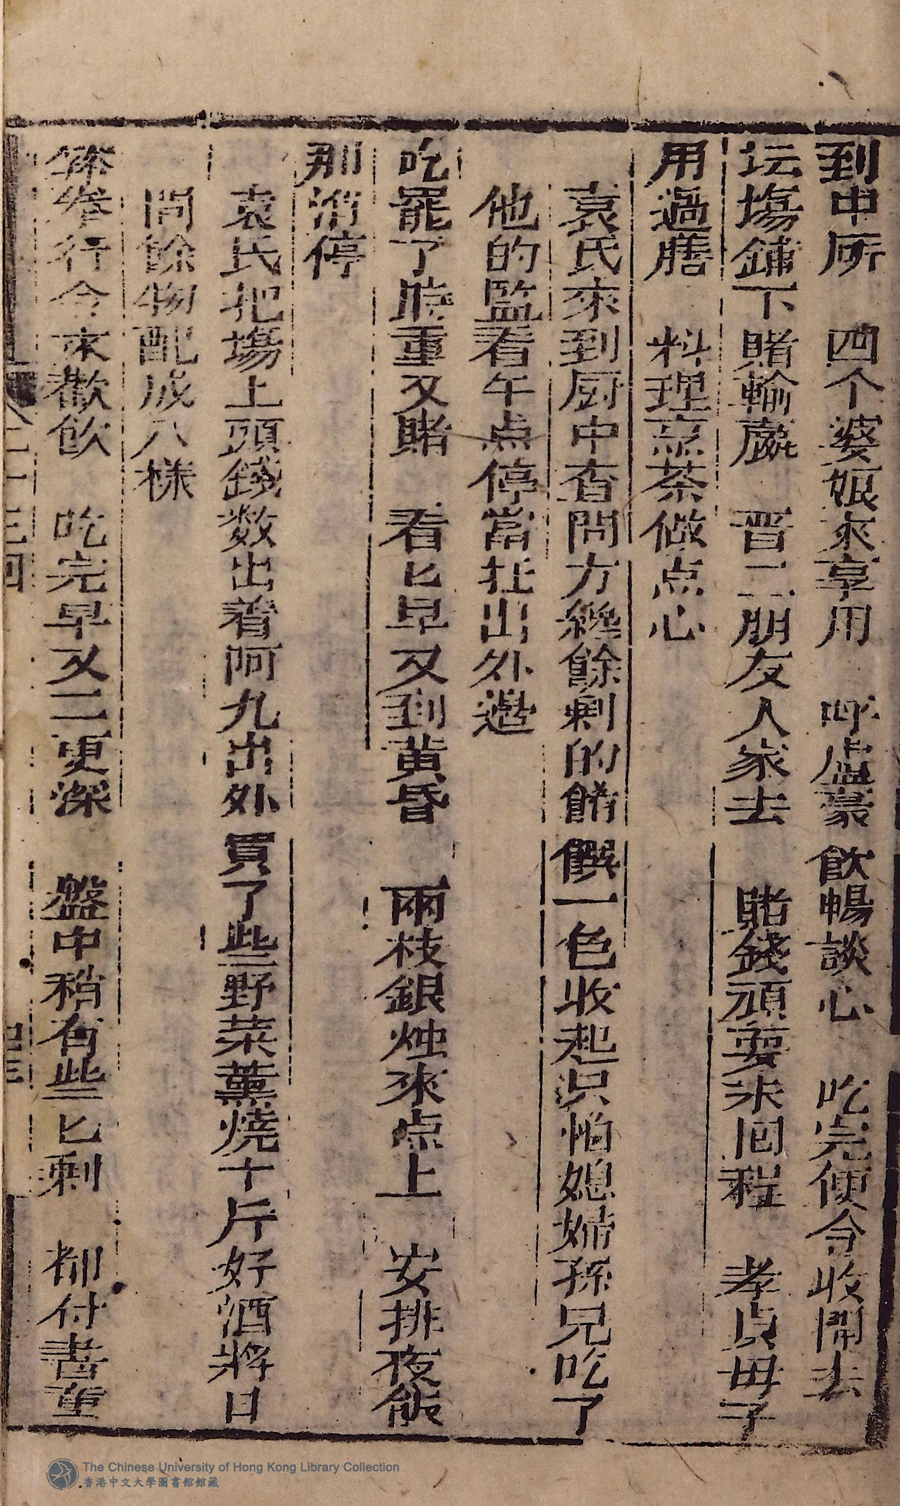 到中所　四个婆娘来享用　呼盧豪飲暢談心　吃完便令收開去
坛塲鋪下賭輸贏　晋二朋友人家去　賭錢頑耍未囘程　孝貞毋子
用過膳　料理烹茶做点心
袁氏來到厨中查問方纔餘剩的餚饌一色收起只怕媳婦孫兒吃了
他的監看午点停當扛出外邉
吃罷了時重又賭　看匕早又到黄昏　兩枝銀烛來点上　安排夜飯
那消停
袁氏把塲上頭錢数出着阿九出外買了些野菜薰燒十斤好酒將日
間餘物配成八様
拳行令來歡飲　吃完早又二更深　盤中稍有些匕剩　都付書童
The Chinese University of Hong Kong Library Collection
香港中文大學圖書館館藏